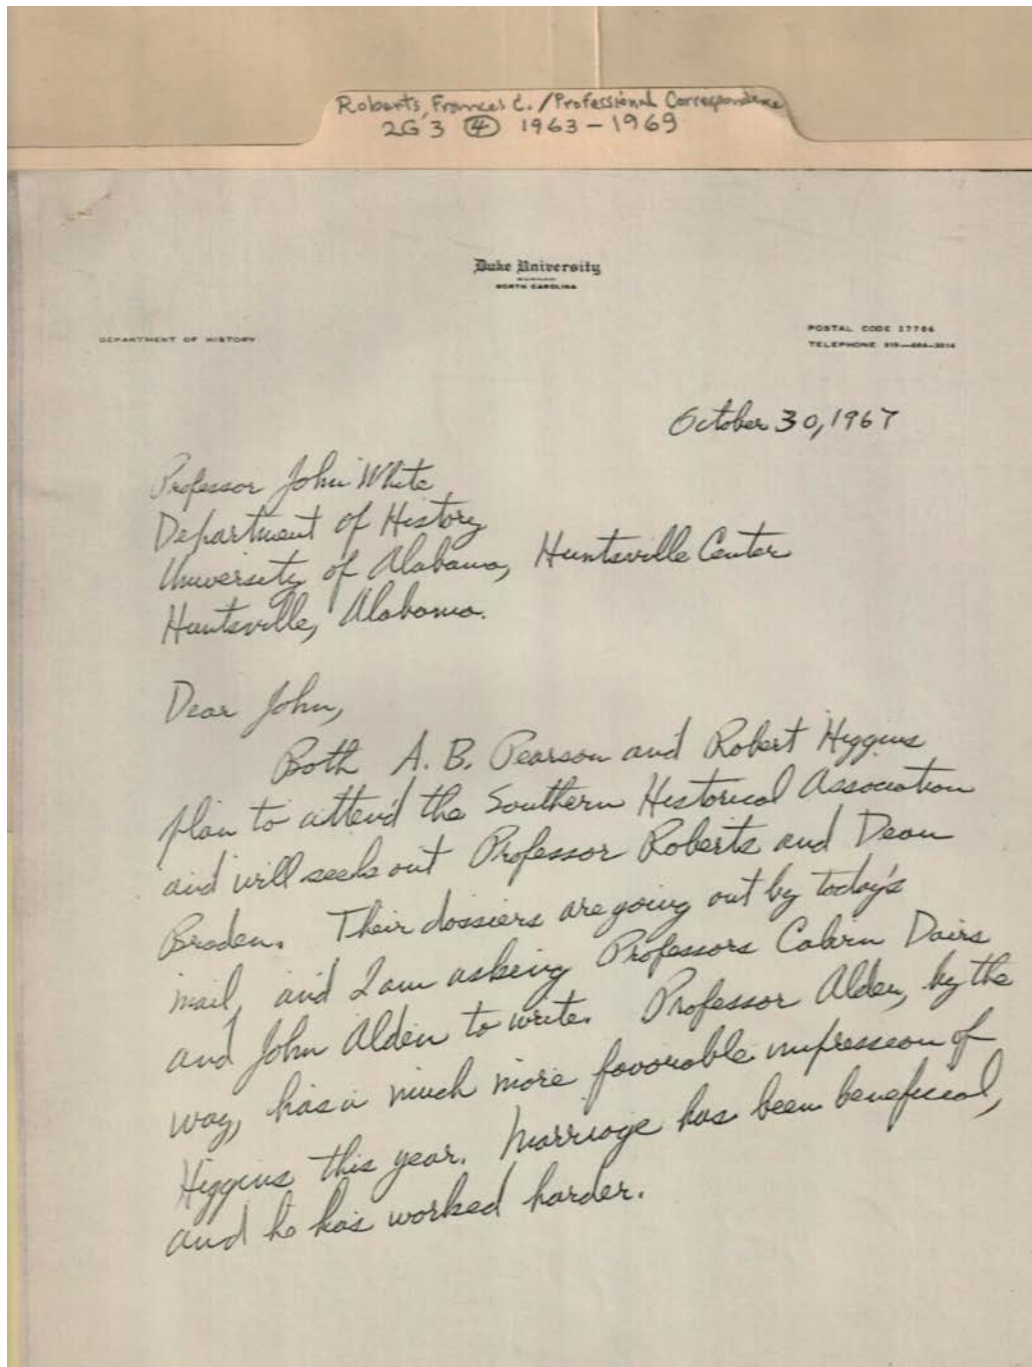 Roberts, Frances C. / Professional Correspondence
2G 3 ④ 1963-1969
Duke University
DURHAM
NORTH CAROLINA
DEPARTMENT OF HISTORY
POSTAL CODE 27706
TELEPHONE 919-684-3014
October 30, 1967
Professor John White
Department of History
University of Alabama, Huntsville Center
Huntsville, Alabama.
Dear John,
Both A. B. Pearson and Robert Higgins
plan to attend the Southern Historical Association
and will seek out Professor Roberts and Dean
Braden. Their dossiers are going out by today's
mail, and I am asking Professors Calvin Davis
and John Alden to write. Professor Alden, by the
way, has a much more favorable impression of
Higgins this year. Marriage has been beneficial,
and he has worked harder.